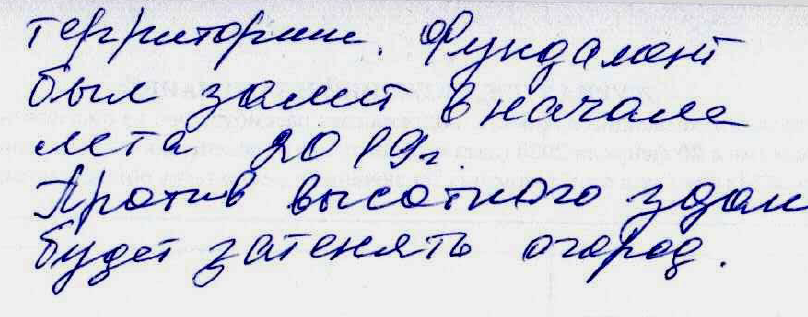 территории. Фундамент
был залит в начале
лета 2019г
Против высотного здан
будет затенять огород.